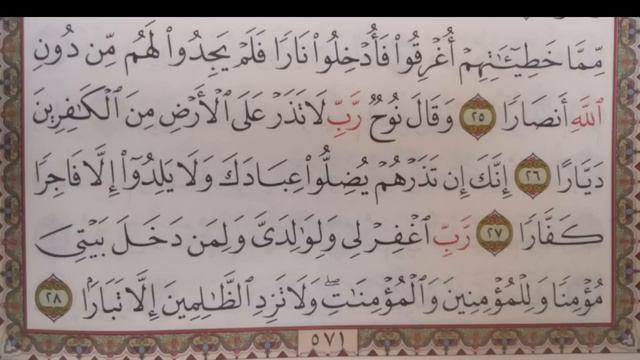 مِّمَّا خَطِيٓـَٰٔتِهِمْ أُغْرِقُوا۟ فَأُدْخِلُوا۟ نَارًا فَلَمْ يَجِدُوا۟ لَهُم مِّن دُونِ
ٱللَّهِ أَنصَارًا ٢٥ وَقَالَ نُوحٌ رَّبِّ لَا تَذَرْ عَلَى ٱلْأَرْضِ مِنَ ٱلْكَٰفِرِينَ
دَيَّارًا ٢٦ إِنَّكَ إِن تَذَرْهُمْ يُضِلُّوا۟ عِبَادَكَ وَلَا يَلِدُوٓا۟ إِلَّا فَاجِرًا
كَفَّارًا ٢٧ رَّبِّ ٱغْفِرْ لِى وَلِوَٰلِدَىَّ وَلِمَن دَخَلَ بَيْتِىَ
مُؤْمِنًا وَلِلْمُؤْمِنِينَ وَٱلْمُؤْمِنَٰتِۖ وَلَا تَزِدِ ٱلظَّٰلِمِينَ إِلَّا تَبَارًۢا ٢٨
٥٧١